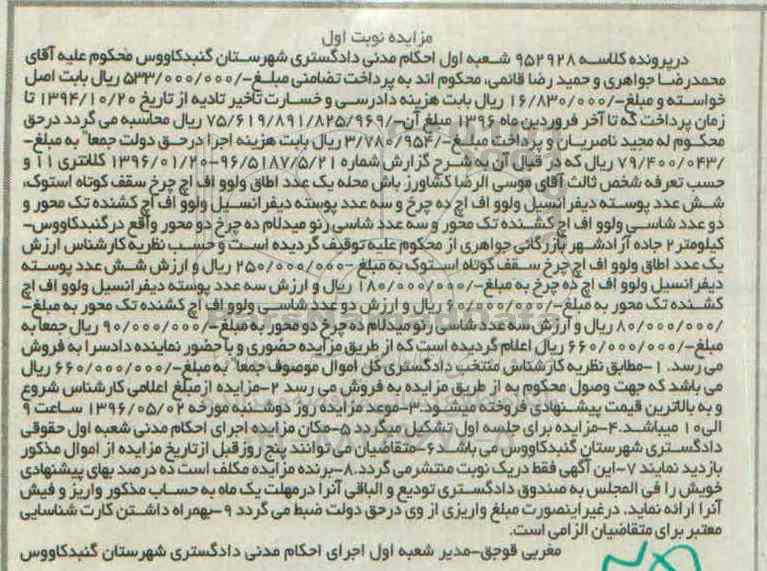 مزایده نوبت اول
درپرونده کلاسه ۹۵۲۹۲۸ شعبه اول احکام مدنی دادگستری شهرستان گنبدکاووس محکوم علیه آقای
محمدرضا جواهری و حمید رضا قائمی، محکوم اند به پرداخت تضامنی مبلغ-/۵۳۳/۰۰۰/۰۰۰ ریال بابت اصل
خواسته و مبلغ-/۱۶/۸۳۰/۰۰۰ ریال بابت هزینه دادرسی و خسارت تأخیر تادیه از تاریخ ۱۳۹۴/۱۰/۲۰ تا
زمان پرداخت که تا آخر فروردین ماه ۱۳۹۶ مبلغ آن-/۷۵/۶۱۹/۸۹۱/۸۲۵/۹۶۹ ریال محاسبه می گردد درحق
محکوم له مجید ناصریان و پرداخت مبلغ-/۳/۷۸۰/۹۵۴ ریال بابت هزینه اجرا درحق دولت جمعا" به مبلغ-
/۷۹/۴۰۰/۰۴۳ ریال که در قبال آن به شرح گزارش شماره ۹۶/۵۱۸۷/۵/۲۱-۱۳۹۶/۰۱/۲۰ کلانتری ۱۱ و
حسب تعرفه شخص ثالث آقای موسی الرضا کشاورز باش محله یک عدد اطاق ولوو اف اچ چرخ سقف کوتاه استوک،
شش عدد پوسته دیفرانسیل ولوو اف اچ ده چرخ و سه عدد پوسته دیفرانسیل ولوو اف اچ کشنده تک محور و
دو عدد شاسی ولوو اف اچ کشنده تک محور و سه عدد شاسی رنو میدلام ده چرخ دو محور واقع در گنبدکاووس-
کیلومتر۲ جاده آزادشهر بازرگانی جواهری از محکوم علیه توقیف گردیده است و حسب نظریه کارشناس ارزش
یک عدد اطاق ولوو اف اچ چرخ سقف کوتاه استوک به مبلغ -/۲۵۰/۰۰۰/۰۰۰ ریال و ارزش شش عدد پوسته
دیفرانسیل ولوو اف اچ ده چرخ به مبلغ-/۱۸۰/۰۰۰/۰۰۰ ریال و ارزش سه عدد پوسته دیفرانسیل ولوو اف اچ
کشنده تک محور به مبلغ-/۶۰/۰۰۰/۰۰۰ ریال و ارزش دو عدد شاسی ولوو اف اچ کشنده تک محور به مبلغ-
/۸۰/۰۰۰/۰۰۰ ریال و ارزش سه عدد شاسی رنو میدلام ده چرخ دو محور به مبلغ-/۹۰/۰۰۰/۰۰۰ ریال جمعا به
مبلغ-/۶۶۰/۰۰۰/۰۰۰ ریال اعلام گردیده است که از طریق مزایده حضوری و با حضور نماینده دادسرا به فروش
می رسد. ۱-مطابق نظریه کارشناس منتخب دادگستری کل اموال موصوف جمعا" به مبلغ-/۶۶۰/۰۰۰/۰۰۰ ریال
می باشد که جهت وصول محکوم به از طریق مزایده به فروش می رسد ۲-مزایده از مبلغ اعلامی کارشناس شروع
و به بالاترین قیمت پیشنهادی فروخته میشود.۳-موعد مزایده روز دوشنبه مورخه ۱۳۹۶/۰۵/۰۲ ساعت ۹
الی۱۰ میباشد.۴-مزایده برای جلسه اول تشکیل میگردد ۵-مکان مزایده اجرای احکام مدنی شعبه اول حقوقی
دادگستری شهرستان گنبدکاووس می باشد۶-متقاضیان می توانند پنج روزقبل ازتاریخ مزایده از اموال مذکور
بازدید نمایند ۷-این آگهی فقط دریک نوبت منتشرمی گردد.۸-برنده مزایده مکلف است ده درصد بهای پیشنهادی
خویش را فی المجلس به صندوق دادگستری تودیع و الباقی آنرا درمهلت یک ماه به حساب مذکور واریز و فیش
آنرا ارائه نماید. درغیراینصورت مبلغ واریزی از وی درحق دولت ضبط می گردد ۹-بهمراه داشتن کارت شناسایی
معتبر برای متقاضیان الزامی است.
مغربی قوجق-مدیر شعبه اول اجرای احکام مدنی دادگستری شهرستان گنبدکاووس